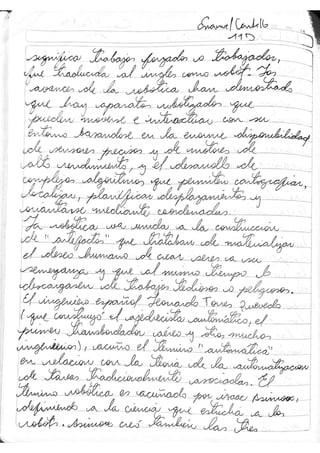 Castillo
11
significa trabajos forzados o trabajador,
que traducida al ingles como robot. Los
avances de la robótica han demostrado
que hay aparatos robotizados que
pueden moverse e interactuar con su
entorno basandose en la enorme disponibilidad
de sensores precisos y de motores de
alto rendimiento, y el desarrollo de
complejos algoritmos que permiten cartografiar,
localizar, planificar desplazamientos y
orientarse mediante coordenadas.
La robótica va unida a la construcción
de "artefactos" que trataban de materializar
el deseo humano de crear seres a su
semejanza y que al mismo tiempo lo
descargasen de trabajos tediosos o peligrosos.
El ingeniero español Leonardo Torres Quevedo
(que construyó el ajedrecista automático, el
primer transbordador aéreo y otros muchos
ingenierios), acuño el término "automática"
en relación con la teoría de la automatización
de tareas tradicionalmente asociadas. El
término robótica es acuñado por Isaac Asimov,
definiendo a la ciencia que estudia a los
robots. Asimov creó también las tres